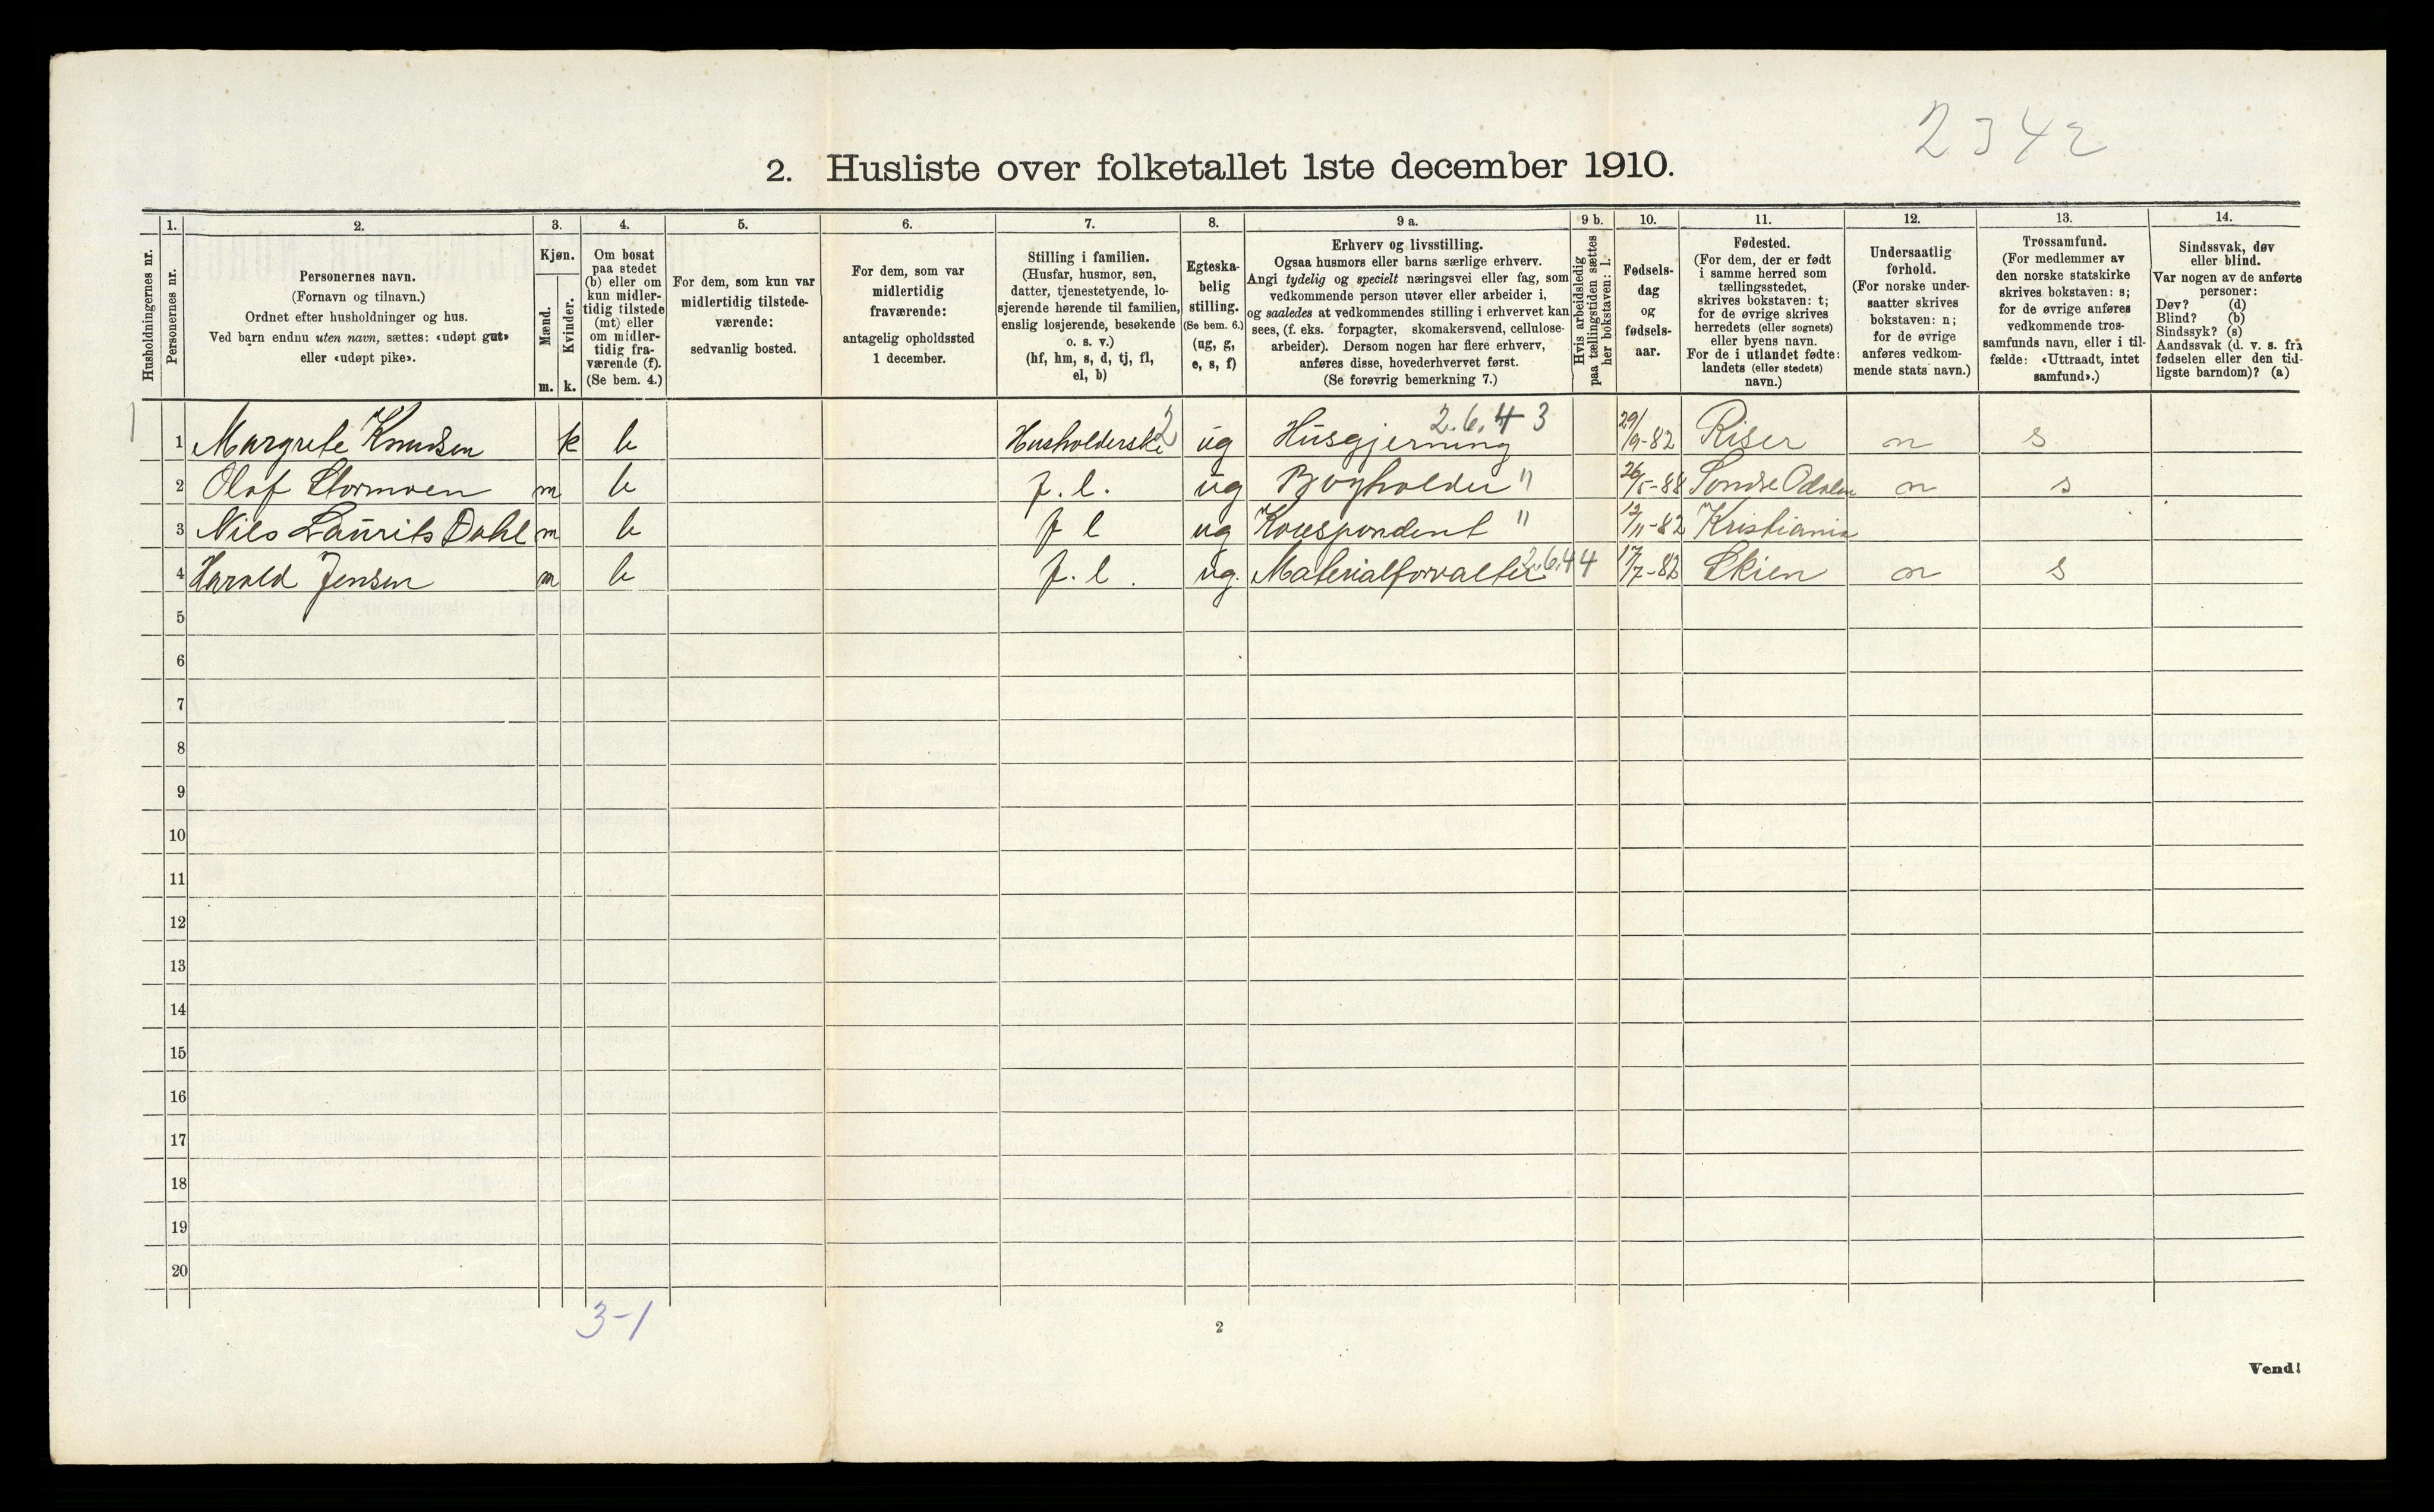 2342
2. Husliste over folketallet 1ste december 1910.
1. 2. 3. 4. 5. 6. 7. 8. 9 a. 9 b. 10. 11. 12. 13. 14.
Husholdningernes nr.
Personernes nr.
Personernes navn.
(Fornavn og tilnavn.)
Ordnet efter husholdninger og hus.
Ved barn endnu uten navn, sættes: «udøpt gut»
eller «udøpt pike».
Kjøn.
Mænd.
Kvinder.
m. k.
Om bosat
paa stedet
(b) eller om
kun midler-
tidig tilstede
(mt) eller
om midler-
tidig fra-
værende (f).
(Se bem. 4.)
For dem, som kun var
midlertidig tilstede-
værende:
sedvanlig bosted.
For dem, som var
midlertidig
fraværende:
antagelig opholdssted
1 december.
Stilling i familien.
(Husfar, husmor, søn,
datter, tjenestetyende, lo-
sjerende hørende til familien,
enslig losjerende, besøkende
o. s. v.)
(hf, hm, s, d, tj, fl,
el, b)
Egteska-
belig
stilling.
(Se bem. 6.)
(ug, g,
e, s, f)
Erhverv og livsstilling.
Ogsaa husmors eller barns særlige erhverv.
Angi tydelig og specielt næringsvei eller fag, som
vedkommende person utøver eller arbeider i,
og saaledes at vedkommendes stilling i erhvervet kan
sees, (f. eks. forpagter, skomakersvend, cellulose-
arbeider). Dersom nogen har flere erhverv,
anføres disse, hovederhvervet først.
(Se forøvrig bemerkning 7.)
Hvis arbeidsledig
paa tællingstiden sættes
her bokstaven: l.
Fødsels-
dag
og
fødsels-
aar.
Fødested.
(For dem, der er født
i samme herred som
tællingsstedet,
skrives bokstaven: t;
for de øvrige skrives
herredets (eller sognets)
eller byens navn.
For de i utlandet fødte:
landets (eller stedets)
navn.)
Undersaatlig
forhold.
(For norske under-
saatter skrives
bokstaven: n;
for de øvrige
anføres vedkom-
mende stats navn.)
Trossamfund.
(For medlemmer av
den norske statskirke
skrives bokstaven: s;
for de øvrige anføres
vedkommende tros-
samfunds navn, eller i til-
fælde: «Uttraadt, intet
samfund».)
Sindssvak, døv
eller blind.
Var nogen av de anførte
personer:
Døv? (d)
Blind? (b)
Sindssyk? (s)
Aandssvak (d. v. s. fra
fødselen eller den tid-
ligste barndom)? (a)
1 1 Margrete Knudsen k b Husholderske 2 ug Husgjerning 2.6.43 29/9-82 Riser n s
2 Olaf Stormoen m b f. l. ug Bogholder " 26/5-88 Søndre Odalen n s
3 Nils Laurits Dahl m b f l ug Korespondent " 12/11-82 Kristiania
4 Harald Jensen m b f. l. ug. Materialforvalter 2.6.44 17/7-82 Skien n s
5
6
7
8
9
10
11
12
13
14
15
16
17
18
19
20
3-1
2
Vend!